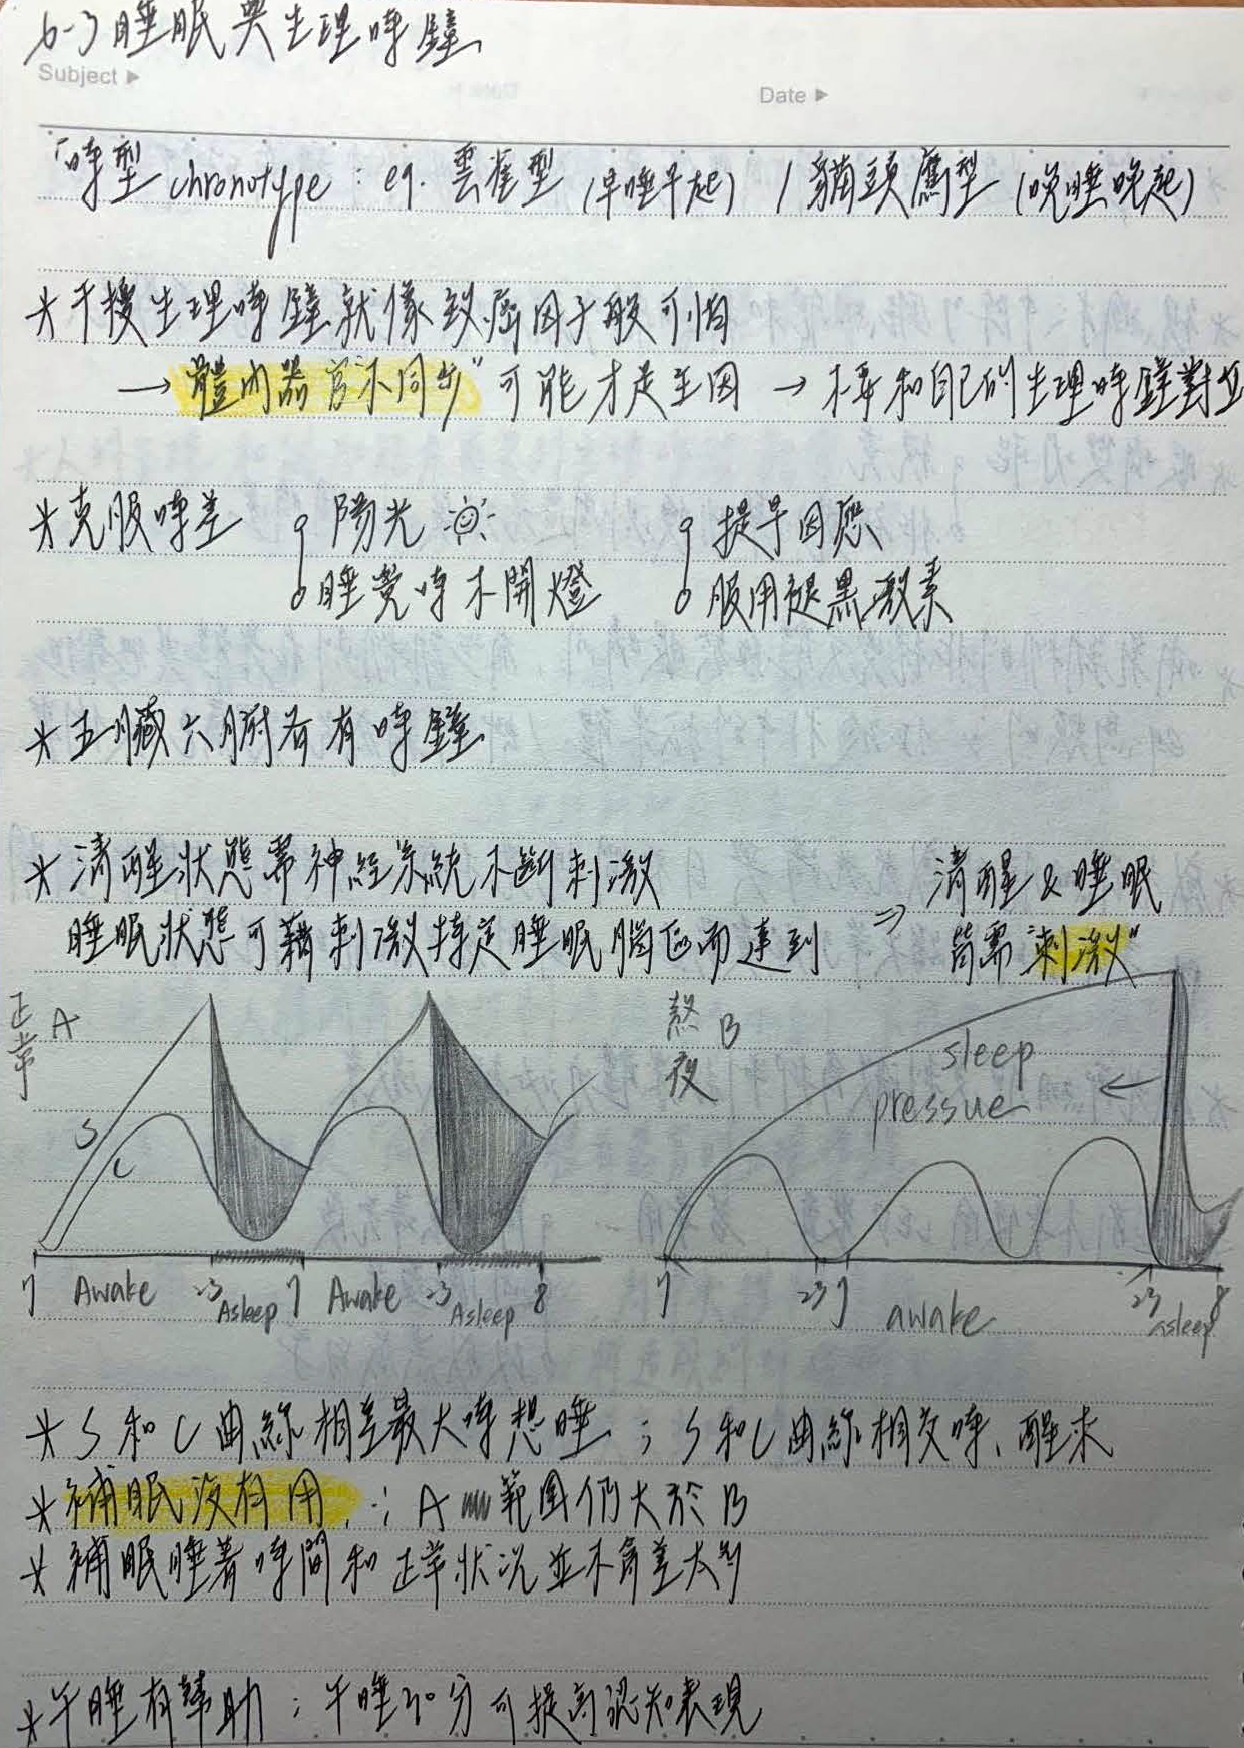 6-3 睡眠與生理時鐘
Subject ▶
Date ▶
"時型 chronotype : eg. 雲雀型 (早睡早起) / 貓頭鷹型 (晚睡晚起)
* 干擾生理時鐘就像致癌因子般可怕
→ "體內器官不同步" 可能才是主因 → 不要和自己的生理時鐘對立
* 克服時差 陽光 提早因應
睡覺時不開燈 服用褪黑激素
* 五臟六腑皆有時鐘
* 清醒狀態需神經系統不斷刺激
睡眠狀態可藉刺激特定睡眠腦區而達到 ⇒ 清醒 & 睡眠
皆需 "刺激"
正常 A
S
C
7 Awake 23 Asleep 7 Awake 23 Asleep 8
熬夜 B
sleep
pressue
←
7 23 7 awake 23 asleep 8
* S 和 C 曲線相差最大時想睡 ; S 和 C 曲線相交時、醒來
* 補眠沒有用 ∵ A 範圍仍大於 B
* 補眠睡著時間和正常狀況並不會差太多
* 午睡有幫助 : 午睡30分可提高認知表現